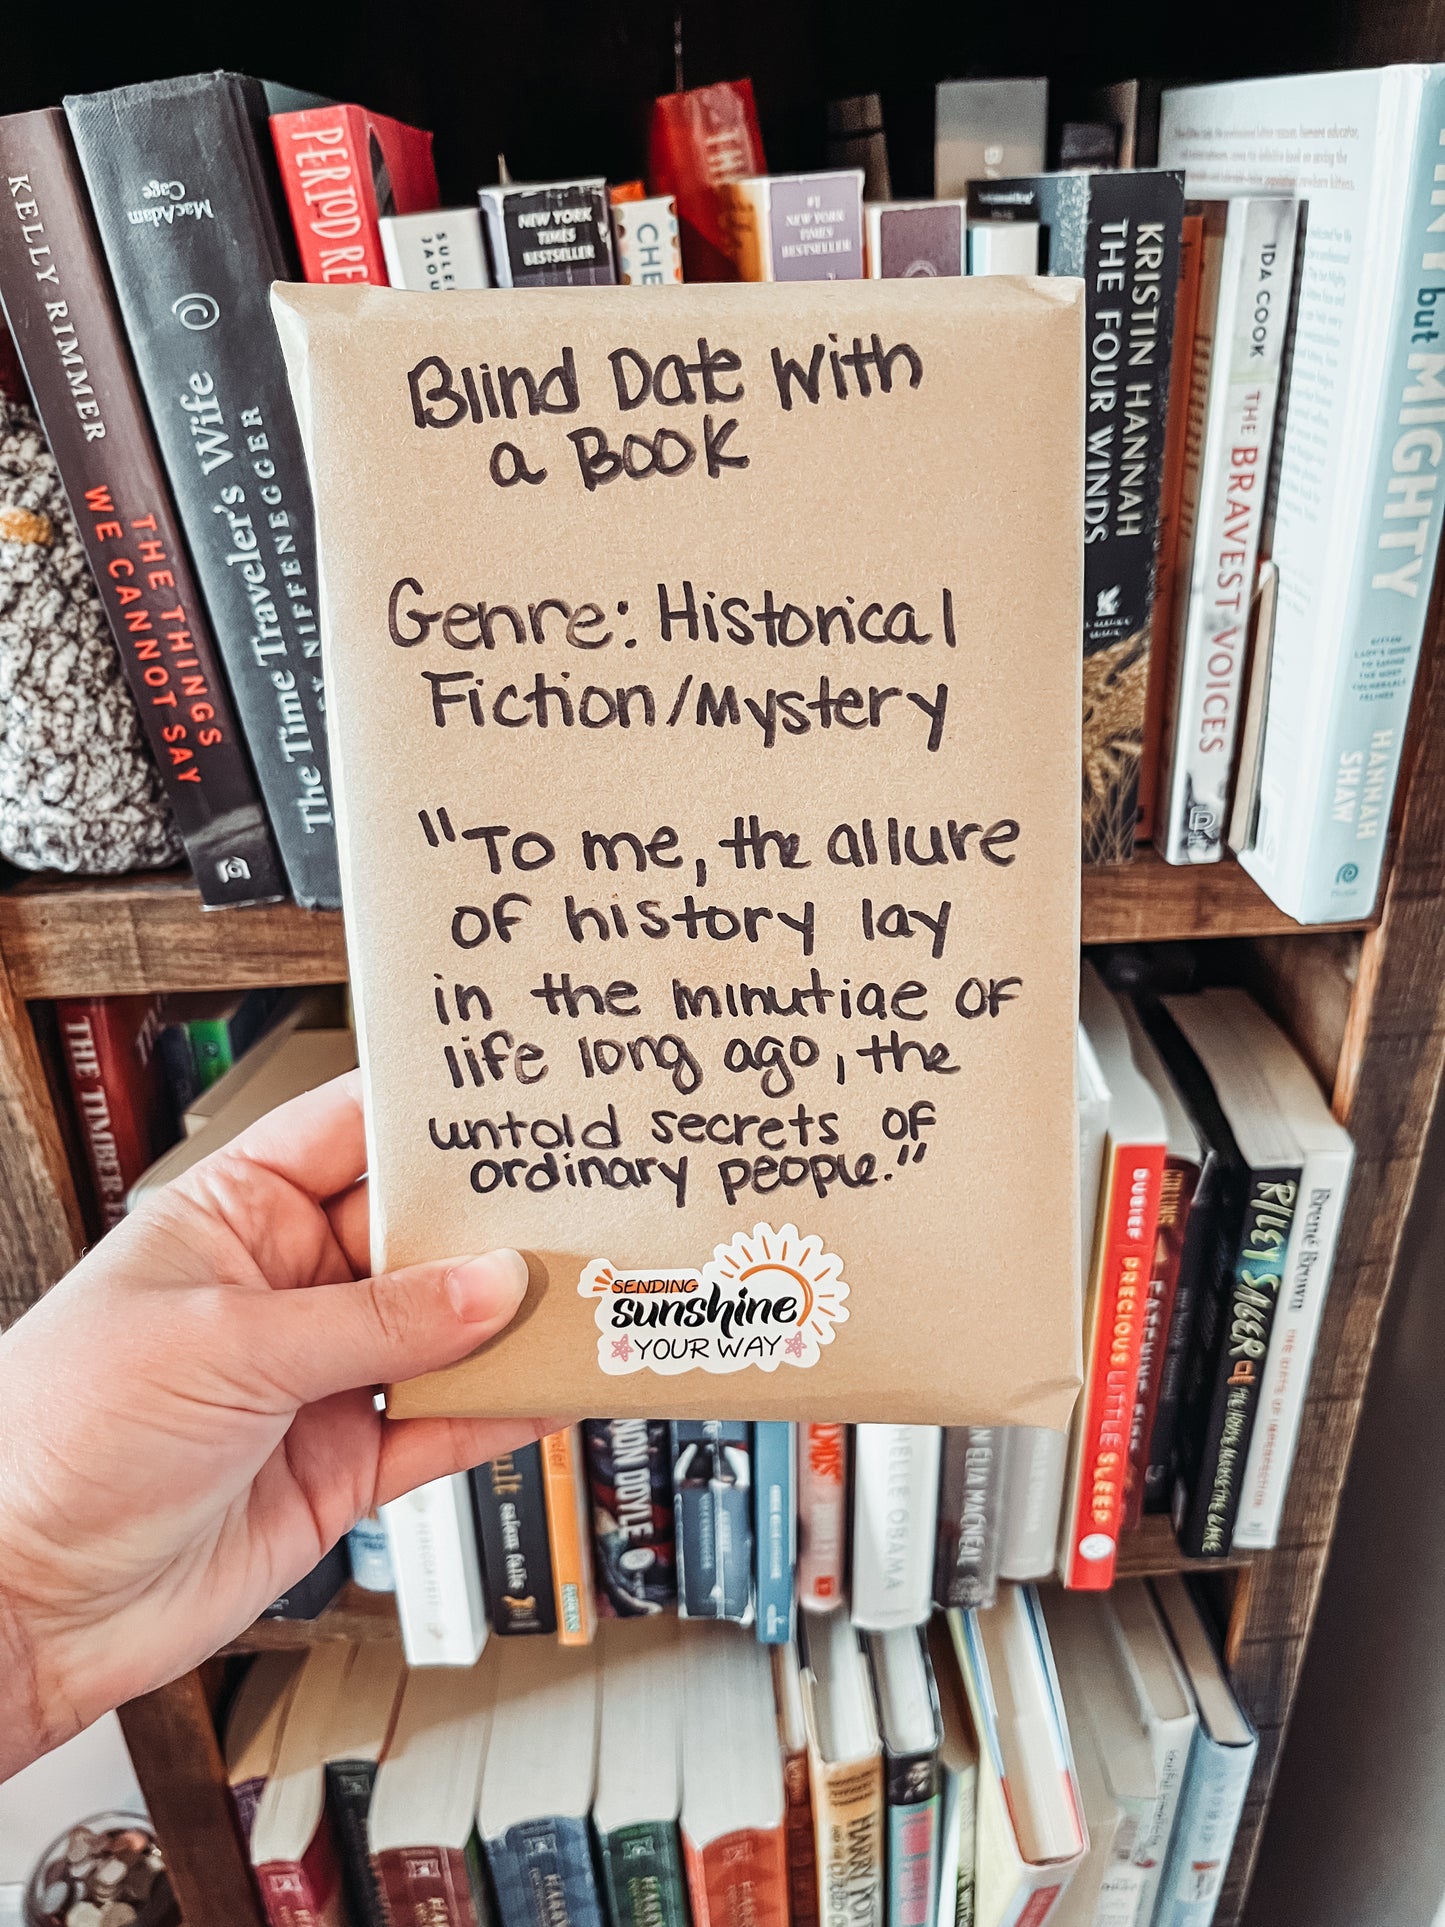 Blind Date With
a Book
Genre: Historical
Fiction/Mystery
"To me, the allure
of history lay
in the minutiae of
life long ago, the
untold secrets of
ordinary people."
SENDING
sunshine
YOUR WAY
KELLY RIMMER
THE THINGS
WE CANNOT SAY
MacAdam
Cage
The Time Traveler's Wife
BY NIFFENEGGER
PERIOD RE
NEW YORK
TIMES
BESTSELLER
CHE
THE
#1
NEW YORK
TIMES
BESTSELLER
KRISTIN HANNAH
THE FOUR WINDS
IDA COOK
THE BRAVEST VOICES
but MIGHTY
HANNAH
SHAW
THE TIMBER
DUBIEF PRECIOUS LITTLE SLEEP
RILEY SAGER
Brené Brown
THE GIFTS OF IMPERFECTION
NON DOYLE
HELLE OBAMA
MACNEAL